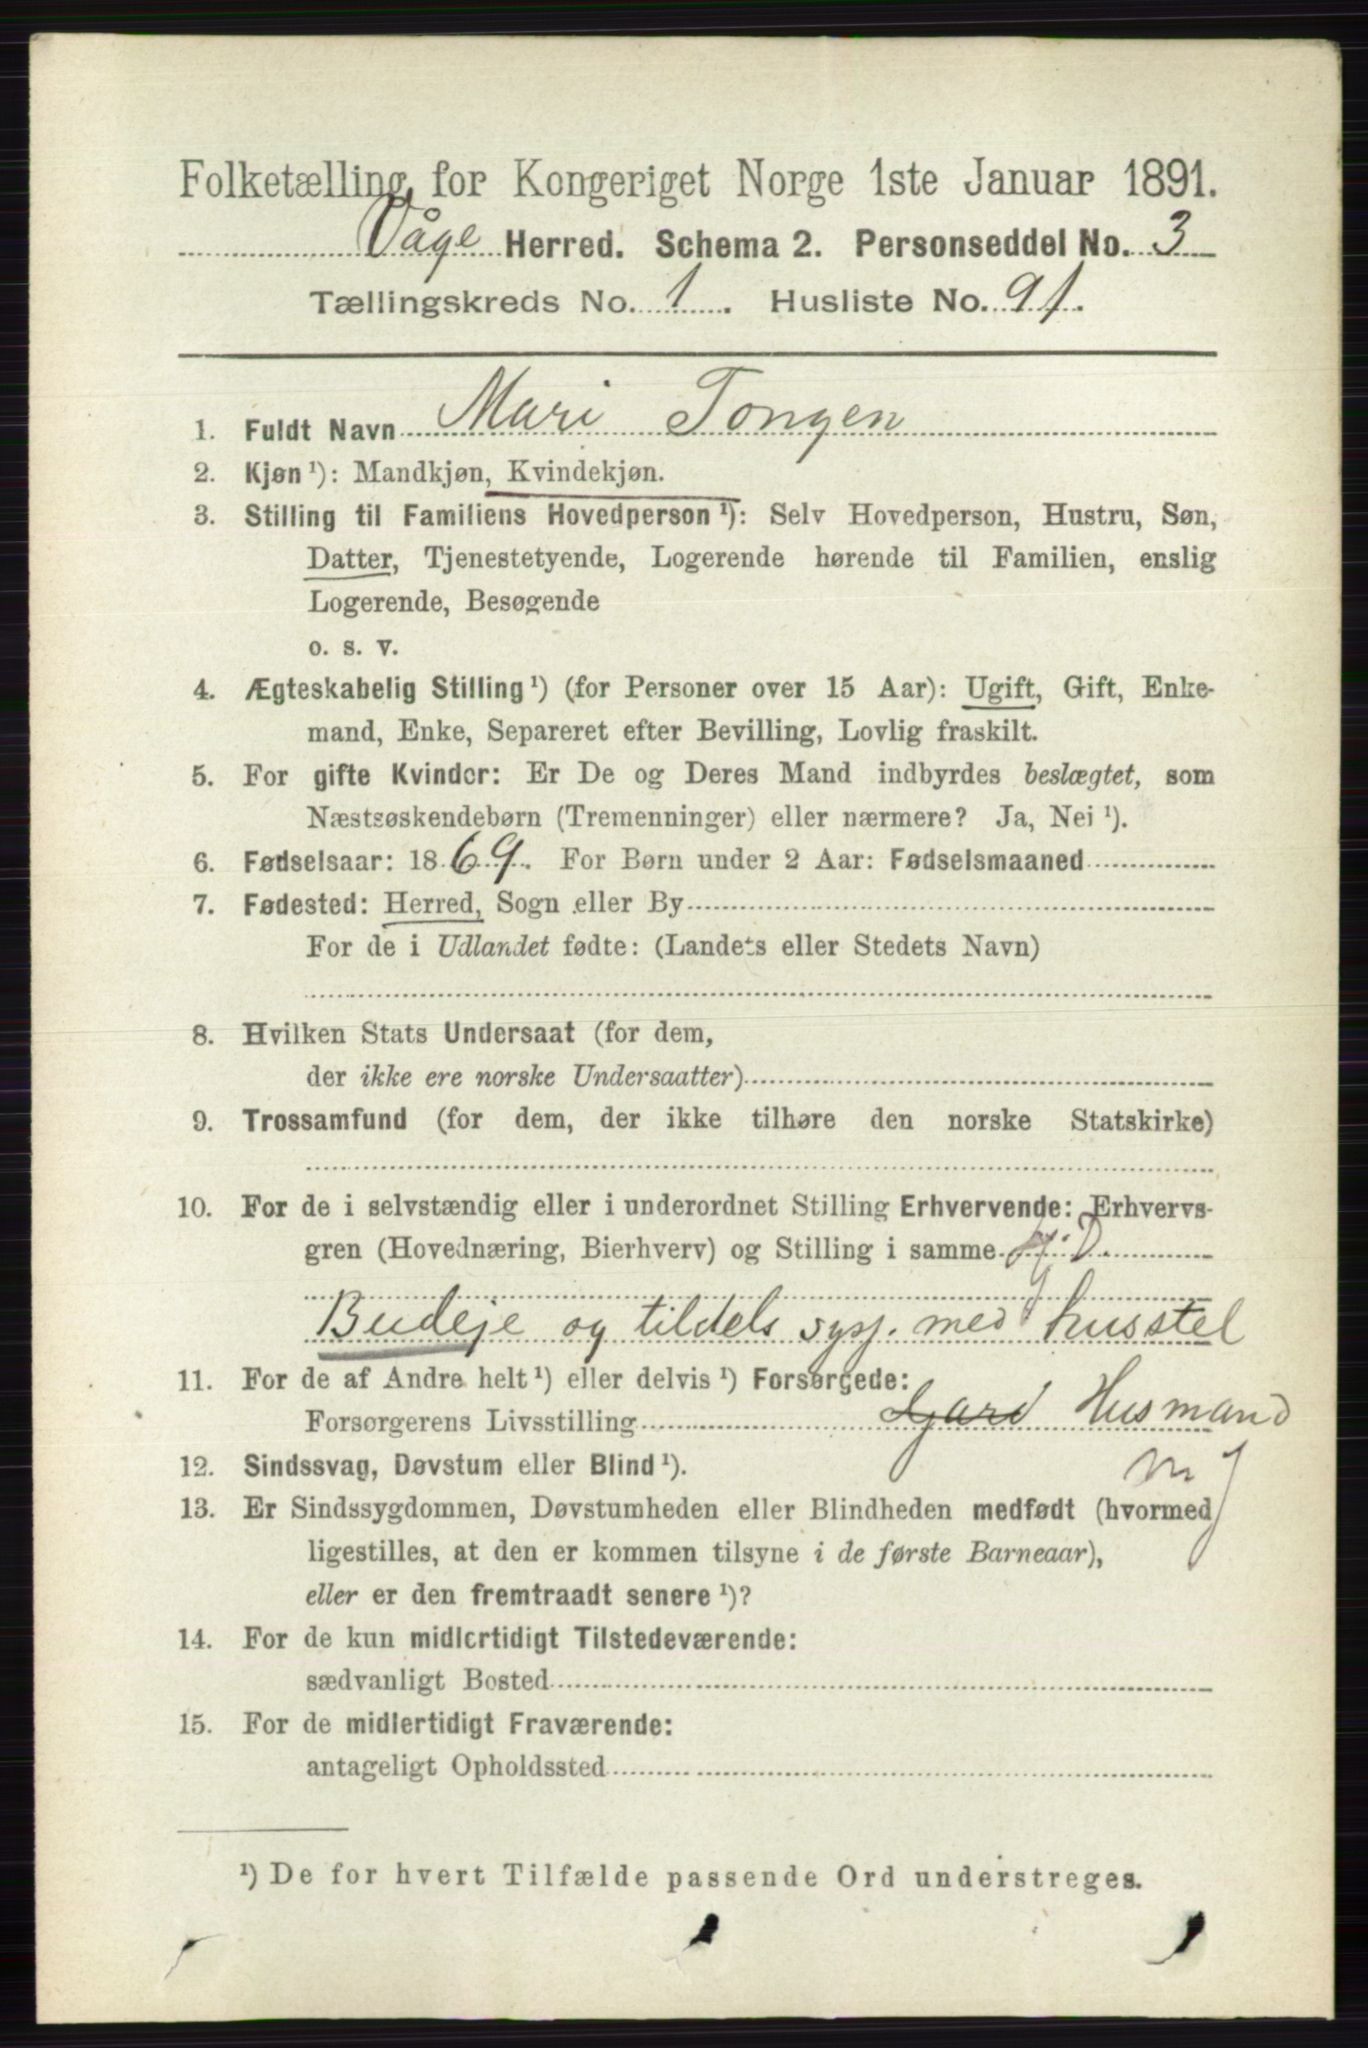 Folketælling for Kongeriget Norge 1ste Januar 1891.
Våge Herred. Schema 2. Personseddel No. 3
Tællingskreds No. 1. Husliste No. 91.
1. Fuldt Navn Mari Tongen
2. Kjøn ¹): Mandkjøn, Kvindekjøn.
3. Stilling til Familiens Hovedperson ¹): Selv Hovedperson, Hustru, Søn,
Datter, Tjenestetyende, Logerende hørende til Familien, enslig
Logerende, Besøgende
o. s. v.
4. Ægteskabelig Stilling ¹) (for Personer over 15 Aar): Ugift, Gift, Enke-
mand, Enke, Separeret efter Bevilling, Lovlig fraskilt.
5. For gifte Kvinder: Er De og Deres Mand indbyrdes beslægtet, som
Næstsøskendebørn (Tremenninger) eller nærmere? Ja, Nei ¹).
6. Fødselsaar: 1869. For Børn under 2 Aar: Fødselsmaaned
7. Fødested: Herred, Sogn eller By
For de i Udlandet fødte: (Landets eller Stedets Navn)
8. Hvilken Stats Undersaat (for dem,
der ikke ere norske Undersaatter)
9. Trossamfund (for dem, der ikke tilhøre den norske Statskirke)
10. For de i selvstændig eller i underordnet Stilling Erhvervende: Erhvervs-
gren (Hovednæring, Bierhverv) og Stilling i samme
Budeje og tildels sysj. med husstel
11. For de af Andre helt ¹) eller delvis ¹) Forsørgede:
Forsørgerens Livsstilling Gard Husmand
m J
12. Sindssvag, Døvstum eller Blind ¹).
13. Er Sindssygdommen, Døvstumheden eller Blindheden medfødt (hvormed
ligestilles, at den er kommen tilsyne i de første Barneaar),
eller er den fremtraadt senere ¹)?
14. For de kun midlertidigt Tilstedeværende:
sædvanligt Bosted
15. For de midlertidigt Fraværende:
antageligt Opholdssted
¹) De for hvert Tilfælde passende Ord understreges.